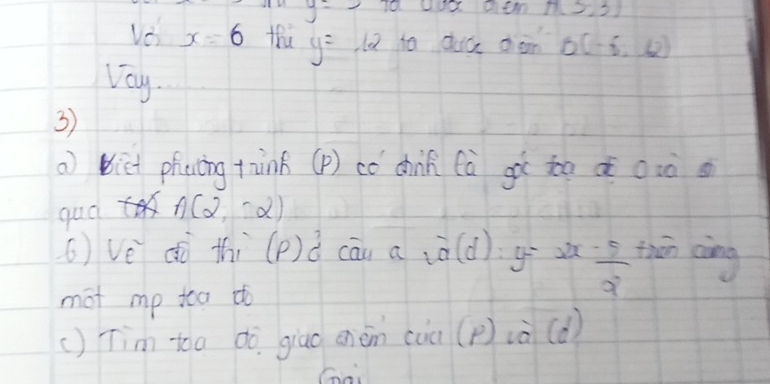 y= 3 ta được điểm A( 3,3)
Với x= 6 thì y= 12 ta được điểm B(-6, 12)
Vậy...
3)
a) Viết phương trình (P) có đỉnh là gốc tọa độ O và
qua A(2, -2)
b) Vẽ đồ thị (P) ở câu a và (d): y= 2x - 5/2 trên cùng
một mp tọa độ
c) Tìm tọa độ giao điểm của (P) và (d)
Giải